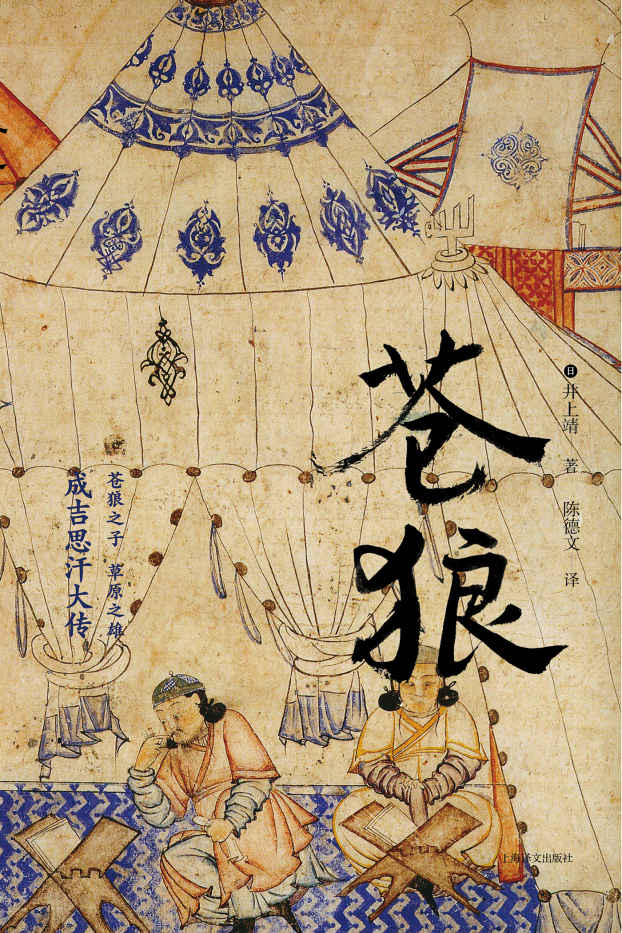 苍狼
日 井上靖 著 陈德文 译
苍狼之子 草原之雄
成吉思汗大传
上海译文出版社